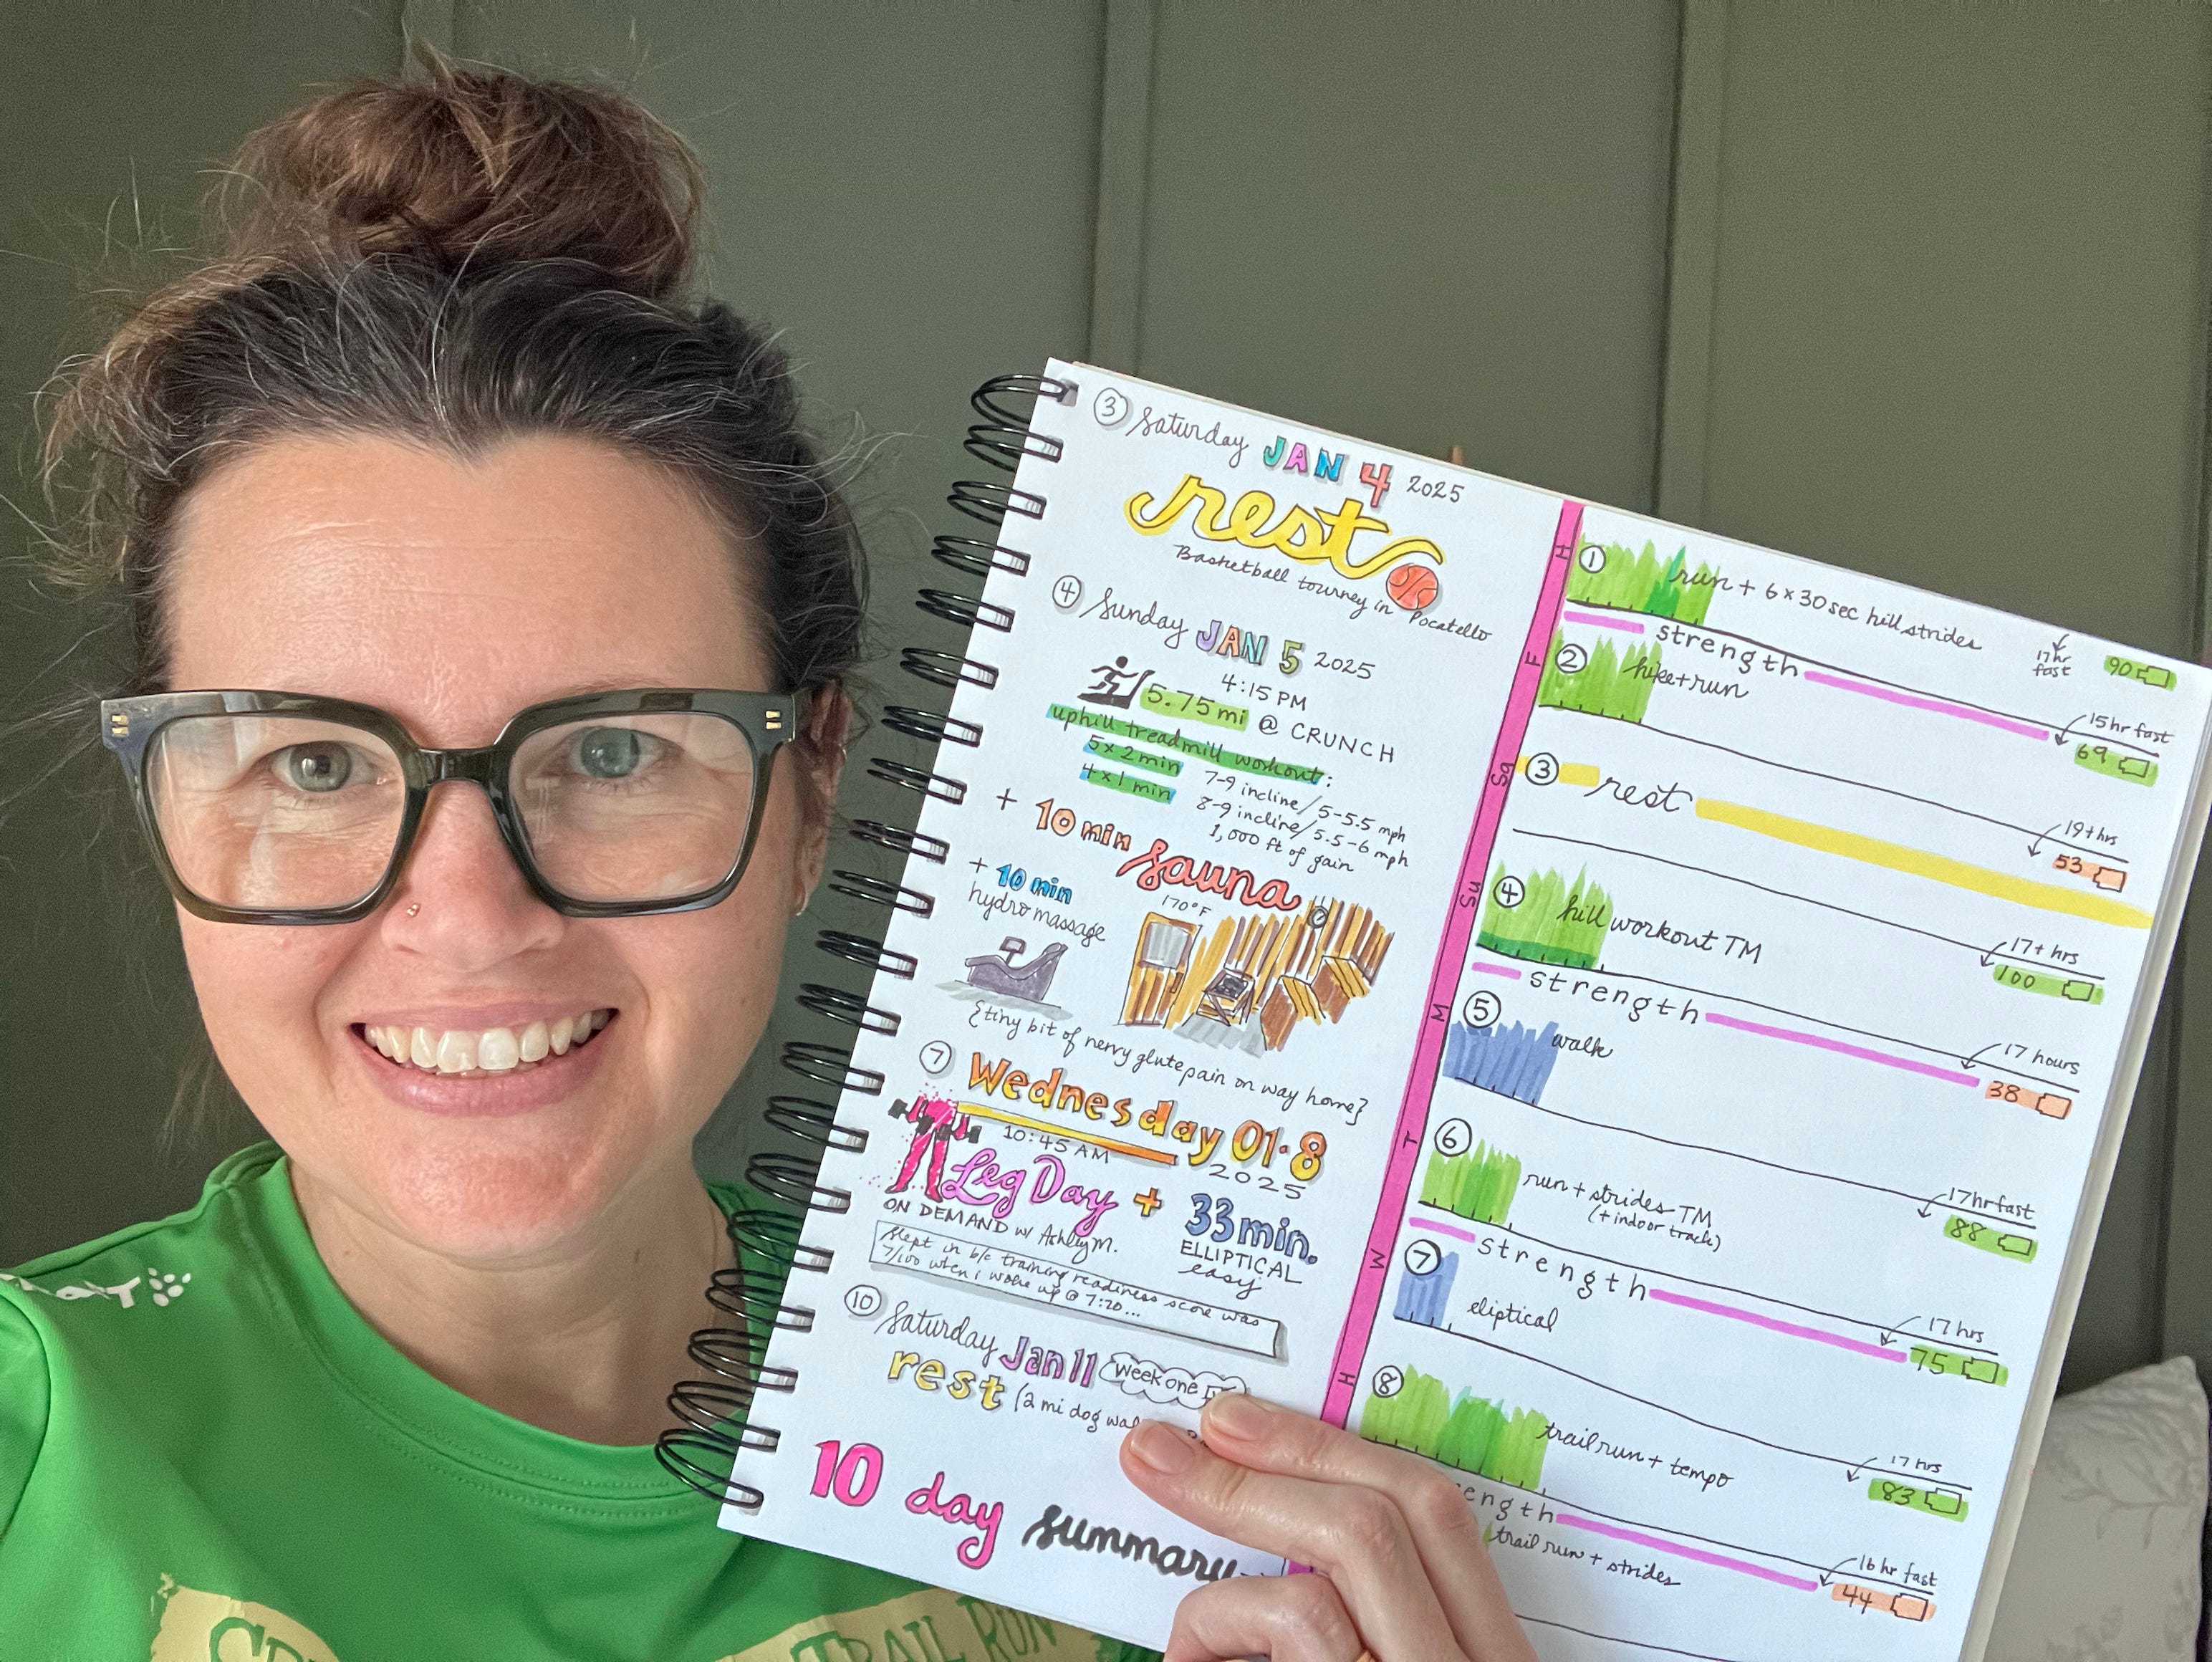 ③ Saturday JAN 4 2025
rest
Basketball tourney in Pocatello
④ Sunday JAN 5 2025
4:15 PM
5.75 mi @ CRUNCH
uphill treadmill workout:
5x2 min 7-9 incline/5-5.5 mph
4x1 min 8-9 incline/5.5-6 mph
1,000 ft of gain
+ 10 min sauna
170°F
+ 10 min
hydromassage
{tiny bit of nervy glute pain on way home}
⑦ Wednesday 01·8
10:45 AM 2025
Leg Day + 33 min.
ON DEMAND w/ Ashley M. ELLIPTICAL
easy
slept in b/c training readiness score was
7/100 when i woke up @ 7:20...
⑩ Saturday Jan 11 week one
rest (2 mi dog
10 day summary
H
① run + 6x30 sec hill strides
17hr
fast
90
strength
F
② hike+run
15hr fast
69
Sa
③ rest
19+hrs
53
Su
④ hill workout TM
17+ hrs
100
strength
M
⑤ walk
17 hours
38
T
⑥ run + strides TM
(+ indoor track)
17hr fast
88
strength
W
⑦ eliptical
17 hrs
75
H
⑧ trail run + tempo
17 hrs
83
ength
trail run + strides
16 hr fast
44
TRAIL RUN